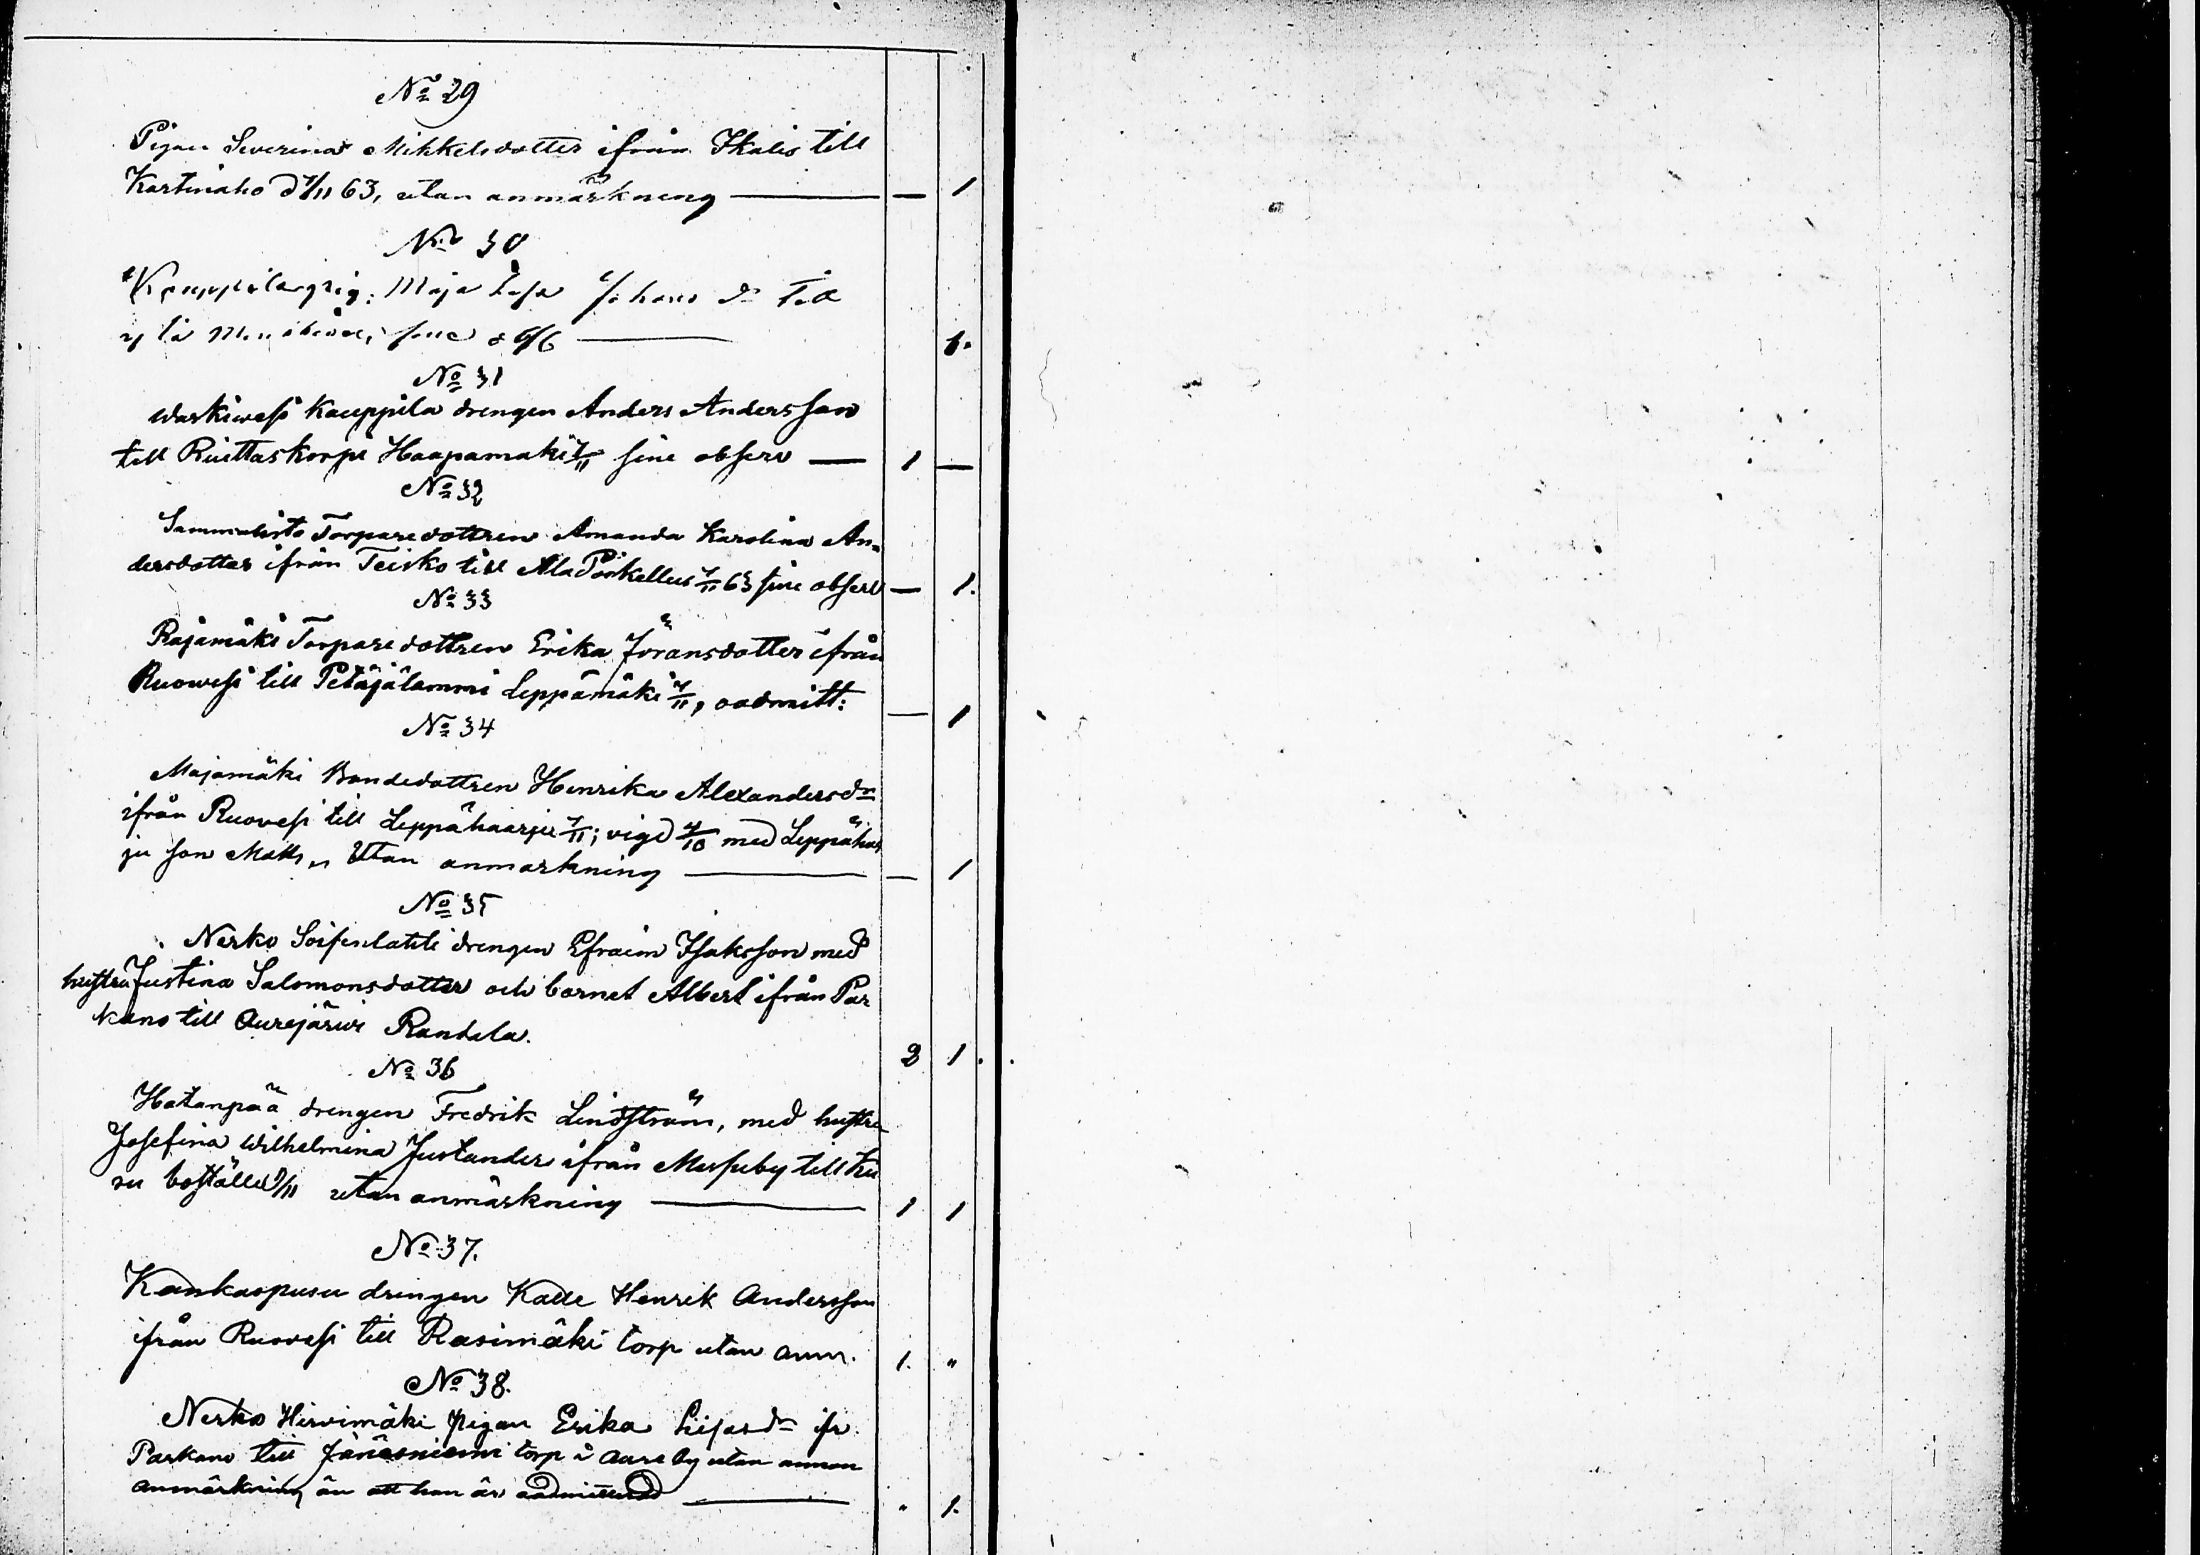 No 29
Pigan Severina Mikkelsdotter ifrån Ikalis till
Kartinaho d 7/11 63, utan anmärkning — — 1
No 30
Maja Lisa Johans dr
1.
No 31
Warkiwesi Kauppila drengen Anders Andersson
till Riuttaskorpi Haapamäki 7/11 sine observ — 1 —
No 32
Sammalisto Torparedottren Amanda Karolina An-
dersdotter ifrån Teisko till Ala Poikellus 7/11 63 sine observ — 1.
No 33
Rajamäki Torparedottren Erika Jöransdotter ifrån
Ruowesi till Petäjälammi Leppämäki 7/11, oadmitt: — 1
No 34
Majamäki Bondedottren Henrika Alexandersdr
ifrån Ruovesi till Leppähaarju 7/11; vigd 4/10 med Leppähar
ju son Matts, Utan anmärkning — — 1
No 35
Nerko drengen Efraim Isaksson med
hustru Justina Salomonsdotter och barnet Albert ifrån Par
kano till Aurejärvi Rantala. 2 1.
No 36
Hatanpää drengen Fredrik Lindström, med hustru
Josefina Wilhelmina Justander ifrån Messuby till Ku
ru boställe 9/11 utan anmärkning — 1 1
No 37.
Kankaspusu drengen Kalle Henrik Andersson
ifrån Ruovesi till Rasimäki torp utan anm. 1. "
No 38.
Nerko Hirvimäki pigan Erika dr ifr.
Parkano till Jänesniemi torp i Aure by utan annan
anmärkning än att hon är oadmitterad — " 1.